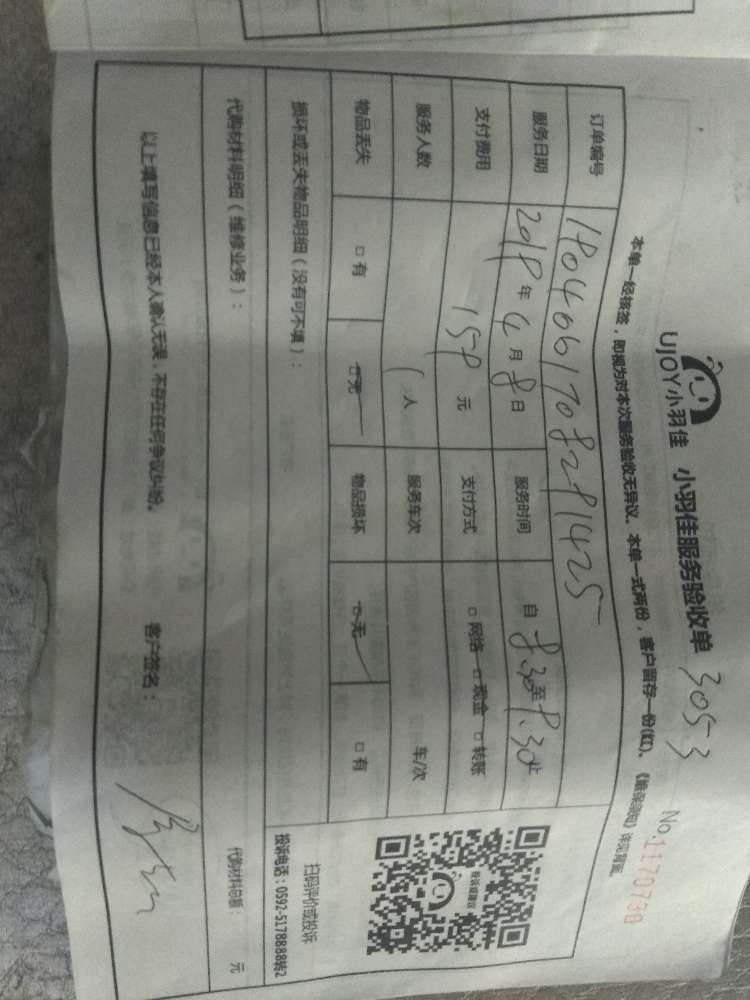 UJOY小羽佳 小羽佳服务验收单 3053
No.1170730
本单一经核签，即视为对本次服务验收无异议。本单一式两份，客户留存一份(红)。《维保须知》详见背面。
订单编号 1804061708281425
服务日期 2018年4月8日 服务时间 自8:30至9:30止
支付费用 158元 支付方式 □网络 □现金 □转账
服务人数 1人 服务车次 车/次
物品丢失 □有 □无 物品损坏 □无 □有
损坏或丢失物品明细（没有可不填）：
扫码评价或投诉
投诉电话：0592-5178888转2
代购材料明细（维修业务）：
代购材料总额： 元
以上填写信息已经本人确认无误，不存在任何争议纠纷。 客户签名：